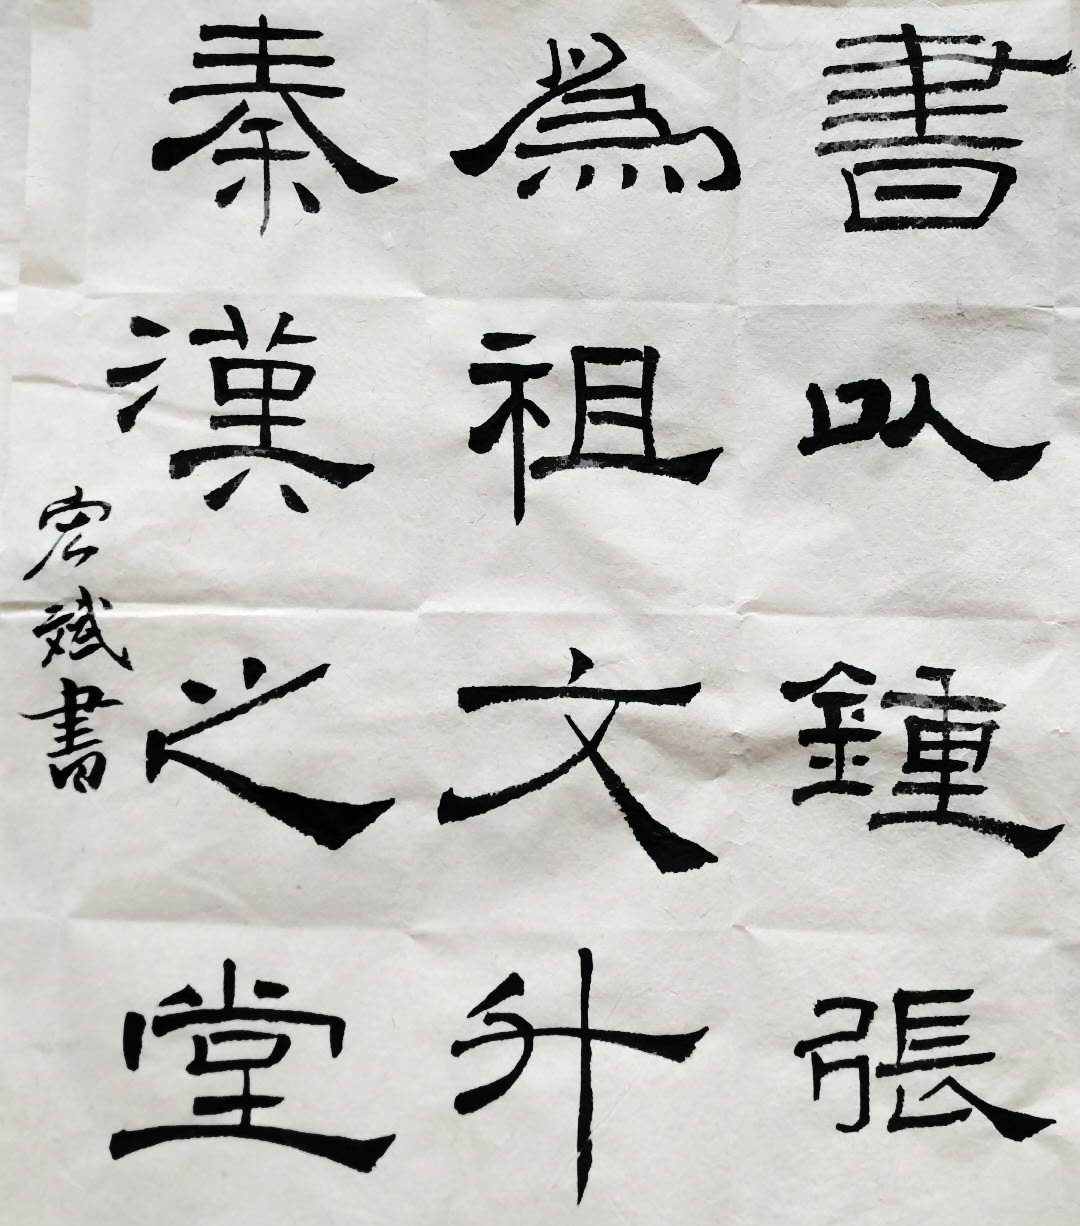 書以鍾張
為祖文升
秦漢之堂
宏斌書